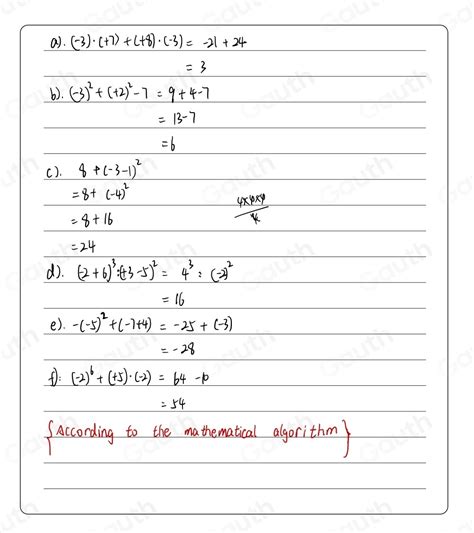 a). (-3)·(+7)+(+8)·(-3) = -21+24
= 3
b). (-3)²+(+2)²-7 = 9+4-7
= 13-7
= 6
c). 8+(-3-1)²
= 8+(-4)²
= 8+16
= 24
d). (-2+6)³:(+3-5)² = 4³:(-2)²
= 16
e). -(-5)²+(-7+4) = -25+(-3)
= -28
f): (-2)⁶+(+5)·(-2) = 64-10
= 54
{According to the mathematical algorithm}